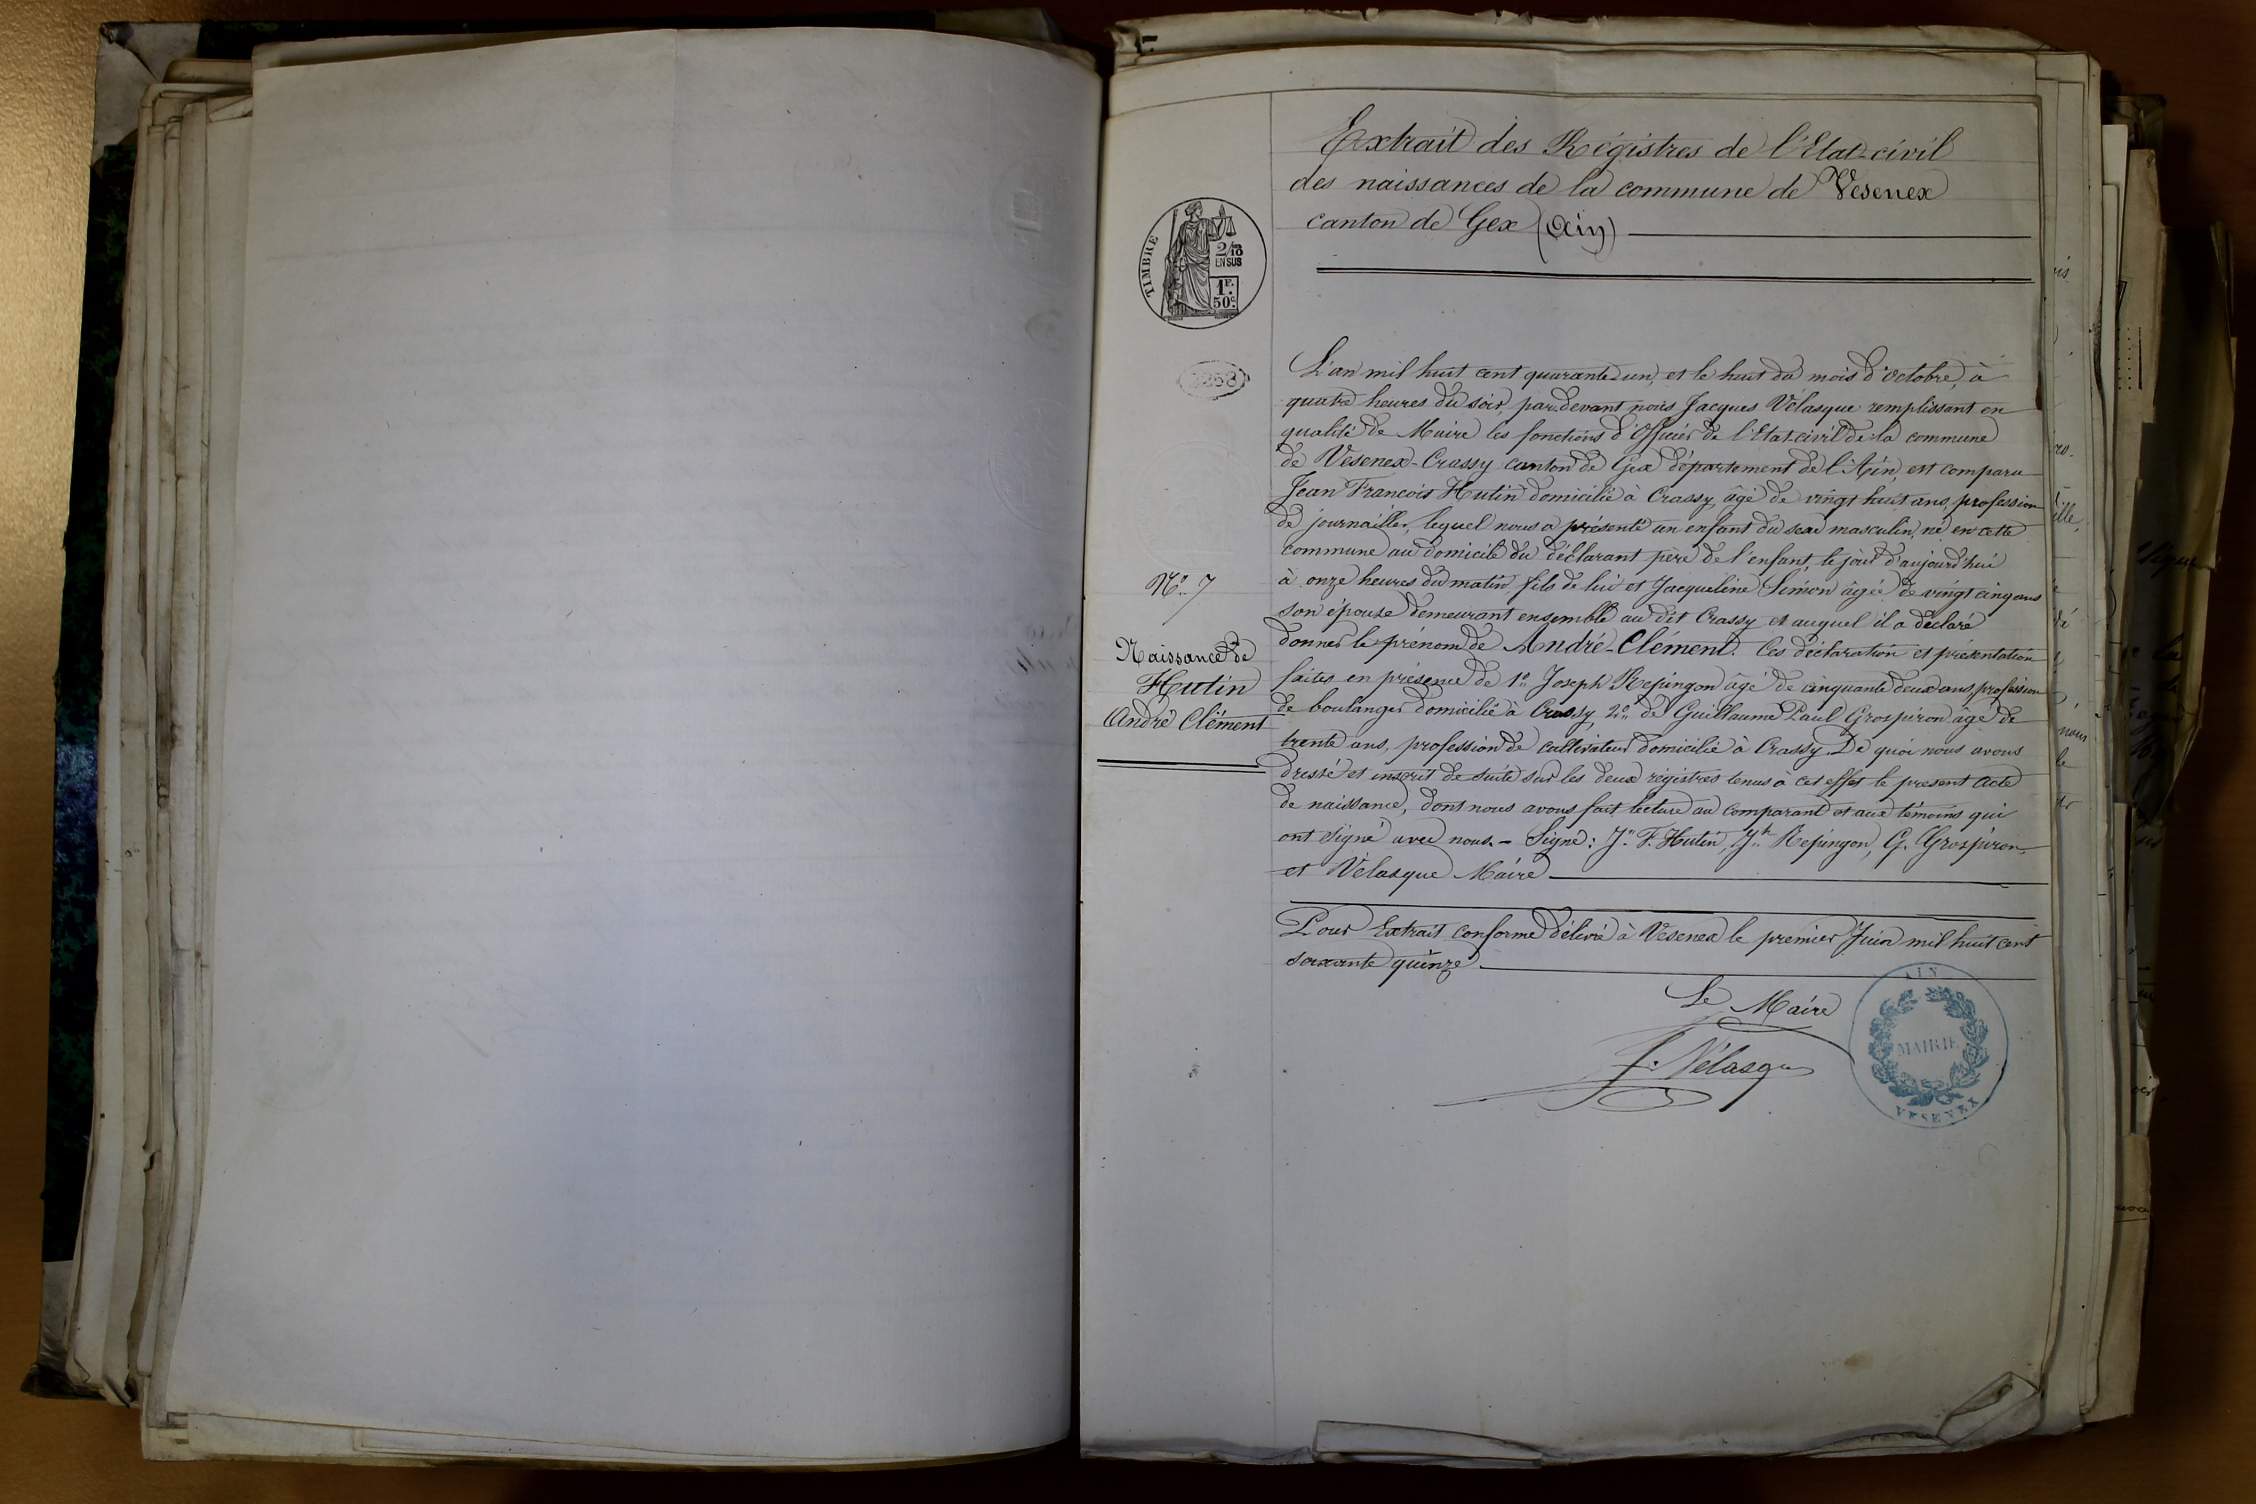 Extrait des Régistres de l'Etat-civil
des naissances de la commune de Vesenex
canton de Gex (Ain)
TIMBRE
2/10
EN SUS
1F.
50c.
L'an mil huit cent quarante-un, et le huit du mois d'Octobre, à
quatre heures du soir, pardevant nous Jacques Vélasque remplissant en
qualité de Maire les fonctions d'Officier de l'Etat-civil de la commune
de Vesenex-Crassy canton de Gex département de l'Ain, est comparu
Jean François Hutin domicilié à Crassy, âgé de vingt huit ans, profession
de journaillier, lequel nous a présenté un enfant du sexe masculin, né en cette
commune au domicile du déclarant père de l'enfant, le jour d'aujourd'hui
à onze heures du matin, fils de lui et Jacqueline Simon âgée de vingt cinq ans
son épouse demeurant ensemble au dit Crassy et auquel il a déclaré
donner le prénom de André-Clément. Ces déclaration et présentation
faites en présence de 1o Joseph Repingon âgé de cinquante deux ans, profession
de boulanger domicilié à Crassy, 2o de Guillaume Paul Grospiron âgé de
trente ans, profession de cultivateur domicilié à Crassy. De quoi nous avons
dressé et inscrit de suite sur les deux régistres tenus à cet effet le présent acte
de naissance, dont nous avons fait lecture au comparant et aux témoins qui
ont signé avec nous. - Signé: Jn F. Hutin, Jh Repingon, G. Grospiron,
et Vélasque Maire
No 7
Naissance de
Hutin
André Clément
Pour Extrait conforme délivré à Vesenex le premier Juin mil huit cent
soixante quinze
Le Maire
J. Vélasque
AIN
MAIRIE
VESENEX